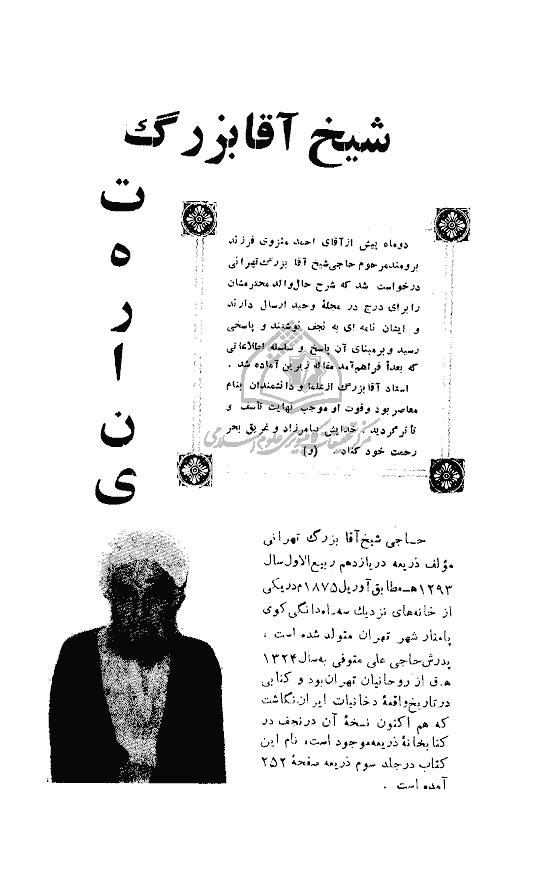 شیخ آقا بزرگ
ت
ه
ر
ا
ن
ی
دوماه پیش از آقای احمد منزوی فرزند
برومند مرحوم حاجی شیخ آقا بزرگ تهرانی
درخواست شد که شرح حال والد محترمشان
را برای درج در مجلهٔ وحید ارسال دارند
و ایشان نامه ای به نجف نوشتند و پاسخی
رسید و بر مبنای آن پاسخ و سلسله اطلاعاتی
که بعداً فراهم آمد مقاله زیرین آماده شد .
استاد آقا بزرگ از علما و دانشمندان بنام
معاصر بود و فوت او موجب نهایت تأسف و
تأثر گردید . خدایش بیامرزاد و غریق بحر
رحمت خود کناد. (و)
مرکز تحقیقات کامپیوتری علوم اسلامی
حاجی شیخ آقا بزرگ تهرانی
مؤلف ذریعه در یازدهم ربیع الاول سال
۱۲۹۳ هـ مطابق آوریل ۱۸۷۵ م در یکی
از خانه‌های نزدیك سه راه دانگی کوی
پامنار شهر تهران متولد شده است ،
پدرش حاجی علی متوفی به سال ۱۳۲۴
ه.ق از روحانیان تهران بود و کتابی
در تاریخ واقعهٔ دخانیات ایران نگاشت
که هم اکنون نسخهٔ آن در نجف در
کتابخانهٔ ذریعه موجود است، نام این
کتاب در جلد سوم ذریعه صفحهٔ ۲۵۲
آمده است .